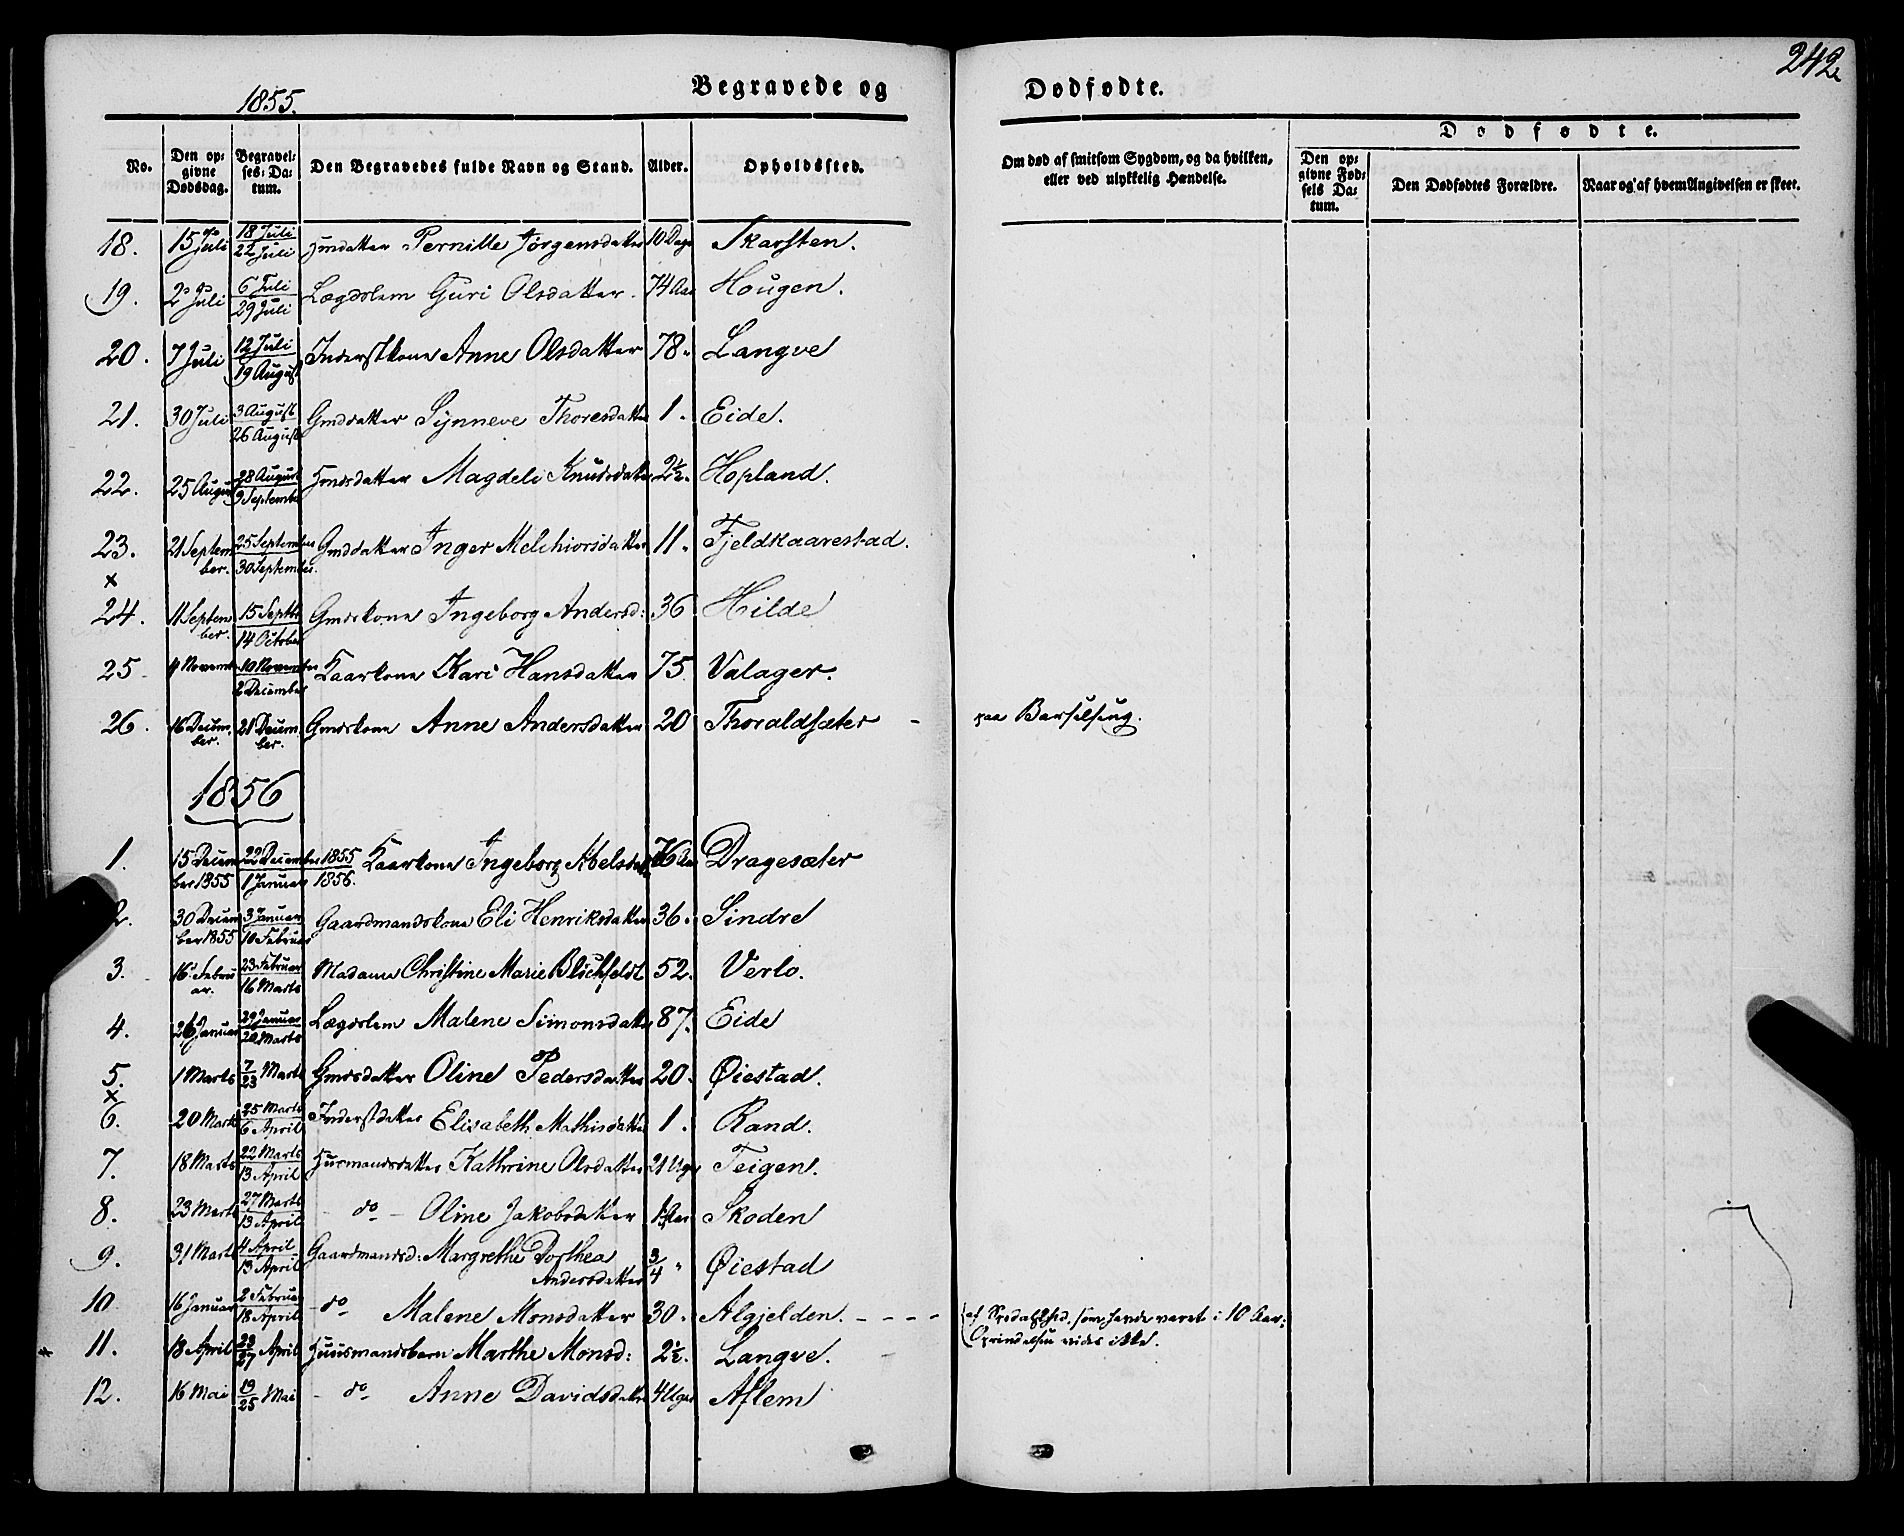 242
1855.
Begravede og
Dødfødte.
No.
Den opgivne Dødsdag.
Begravelses-Datum.
Den Begravedes fulde Navn og Stand.
Alder.
Opholdssted.
Om død af smitsom Sygdom, og da hvilken, eller ved ulykkelig Hændelse.
Dødfødte.
Den opgivne Fødsels Datum.
Den Dødfødtes Forældre.
Naar og af hvem Angivelsen er skeet.
18. 15 Juli 18 Juli 22 Juli Pernille Jørgensdatter 10 Dage Skarsten.
19. 2 Juli 6 Juli 29 Juli Lægdslem Guri Olsdatter. 74 Aar Hougen.
20. 7 Juli 12 Juli 19 August Inderstkone Anne Olsdatter 78 " Langve
21. 30 Juli 3 August 26 August Gmdsdatter Synneve Thoresdatter 1 . Eide.
22. 25 August 28 August 9 September Hmdsdatter Magdeli Knudsdatter 2½. Hopland.
23. 21 September. 25 September 30 September. Gmdsdatter Inger Melchiorsdatter 11. Fjeldkaarestad.
x
24. 11 September. 15 Septbr 14 October Gmdskone Ingeborg Andersd: 36 Hilde
25 4 November 10 November 2 December Kaarkone Kari Hansdatter 75. Valager.
26. 16 December. 21 December. Gmdskone Anne Andersdatter 20 Thoraldsæter - paa Barselseng.
1856
1. 15 December 1855 22 December 1855 1 Januar 1856. Kaarkone Ingeborg Abelsdatter 76 Aar Dragesæter
2. 30 December 1855 3 Januar 10 Februar Gaardmandskone Eli Henriksdatter 36. Sindre
3. 16 Februar. 23 Februar 16 Marts Madame Christine Marie Blichfeldt 52. Verlo.
4. 26 Januar 29 Januar 20 Marts Lægdslem Malene Simonsdatter 87. Eide
5. 1 Marts 7/23 Marts Gmdsdatter Oline Pedersdatter 20. Øiestad.
x
6. 20 Marts 25 Marts 6 April Inderstdatter Elisabeth Mathisdatter 1. Rand.
7. 18 Marts 22 Marts 13 April Husmandsdatter Kathrine Olsdatter 21 Uger Teigen.
8. 23 Marts 27 Marts 13 April - do - Oline Jakobsdatter 1 Aar Skoden
9. 31 Marts 4 April 13 April Gaardmandsd: Margrethe Dorthea Andersdatter ¾ " Øiestad
10. 16 Januar 2 Februar 18 April - do Malene Monsdatter 30. Algjelden. - - - - af Spedalskhed, som havde varet i 10 Aar.
Oprindelsen vides ikke.
11. 18 April 23/27 April Huusmandsbarn Marthe Monsd: 2½. Langve.
12. 16 Mai 19/25 Mai - do Anne Davidsdatter 4 Uger Aflem